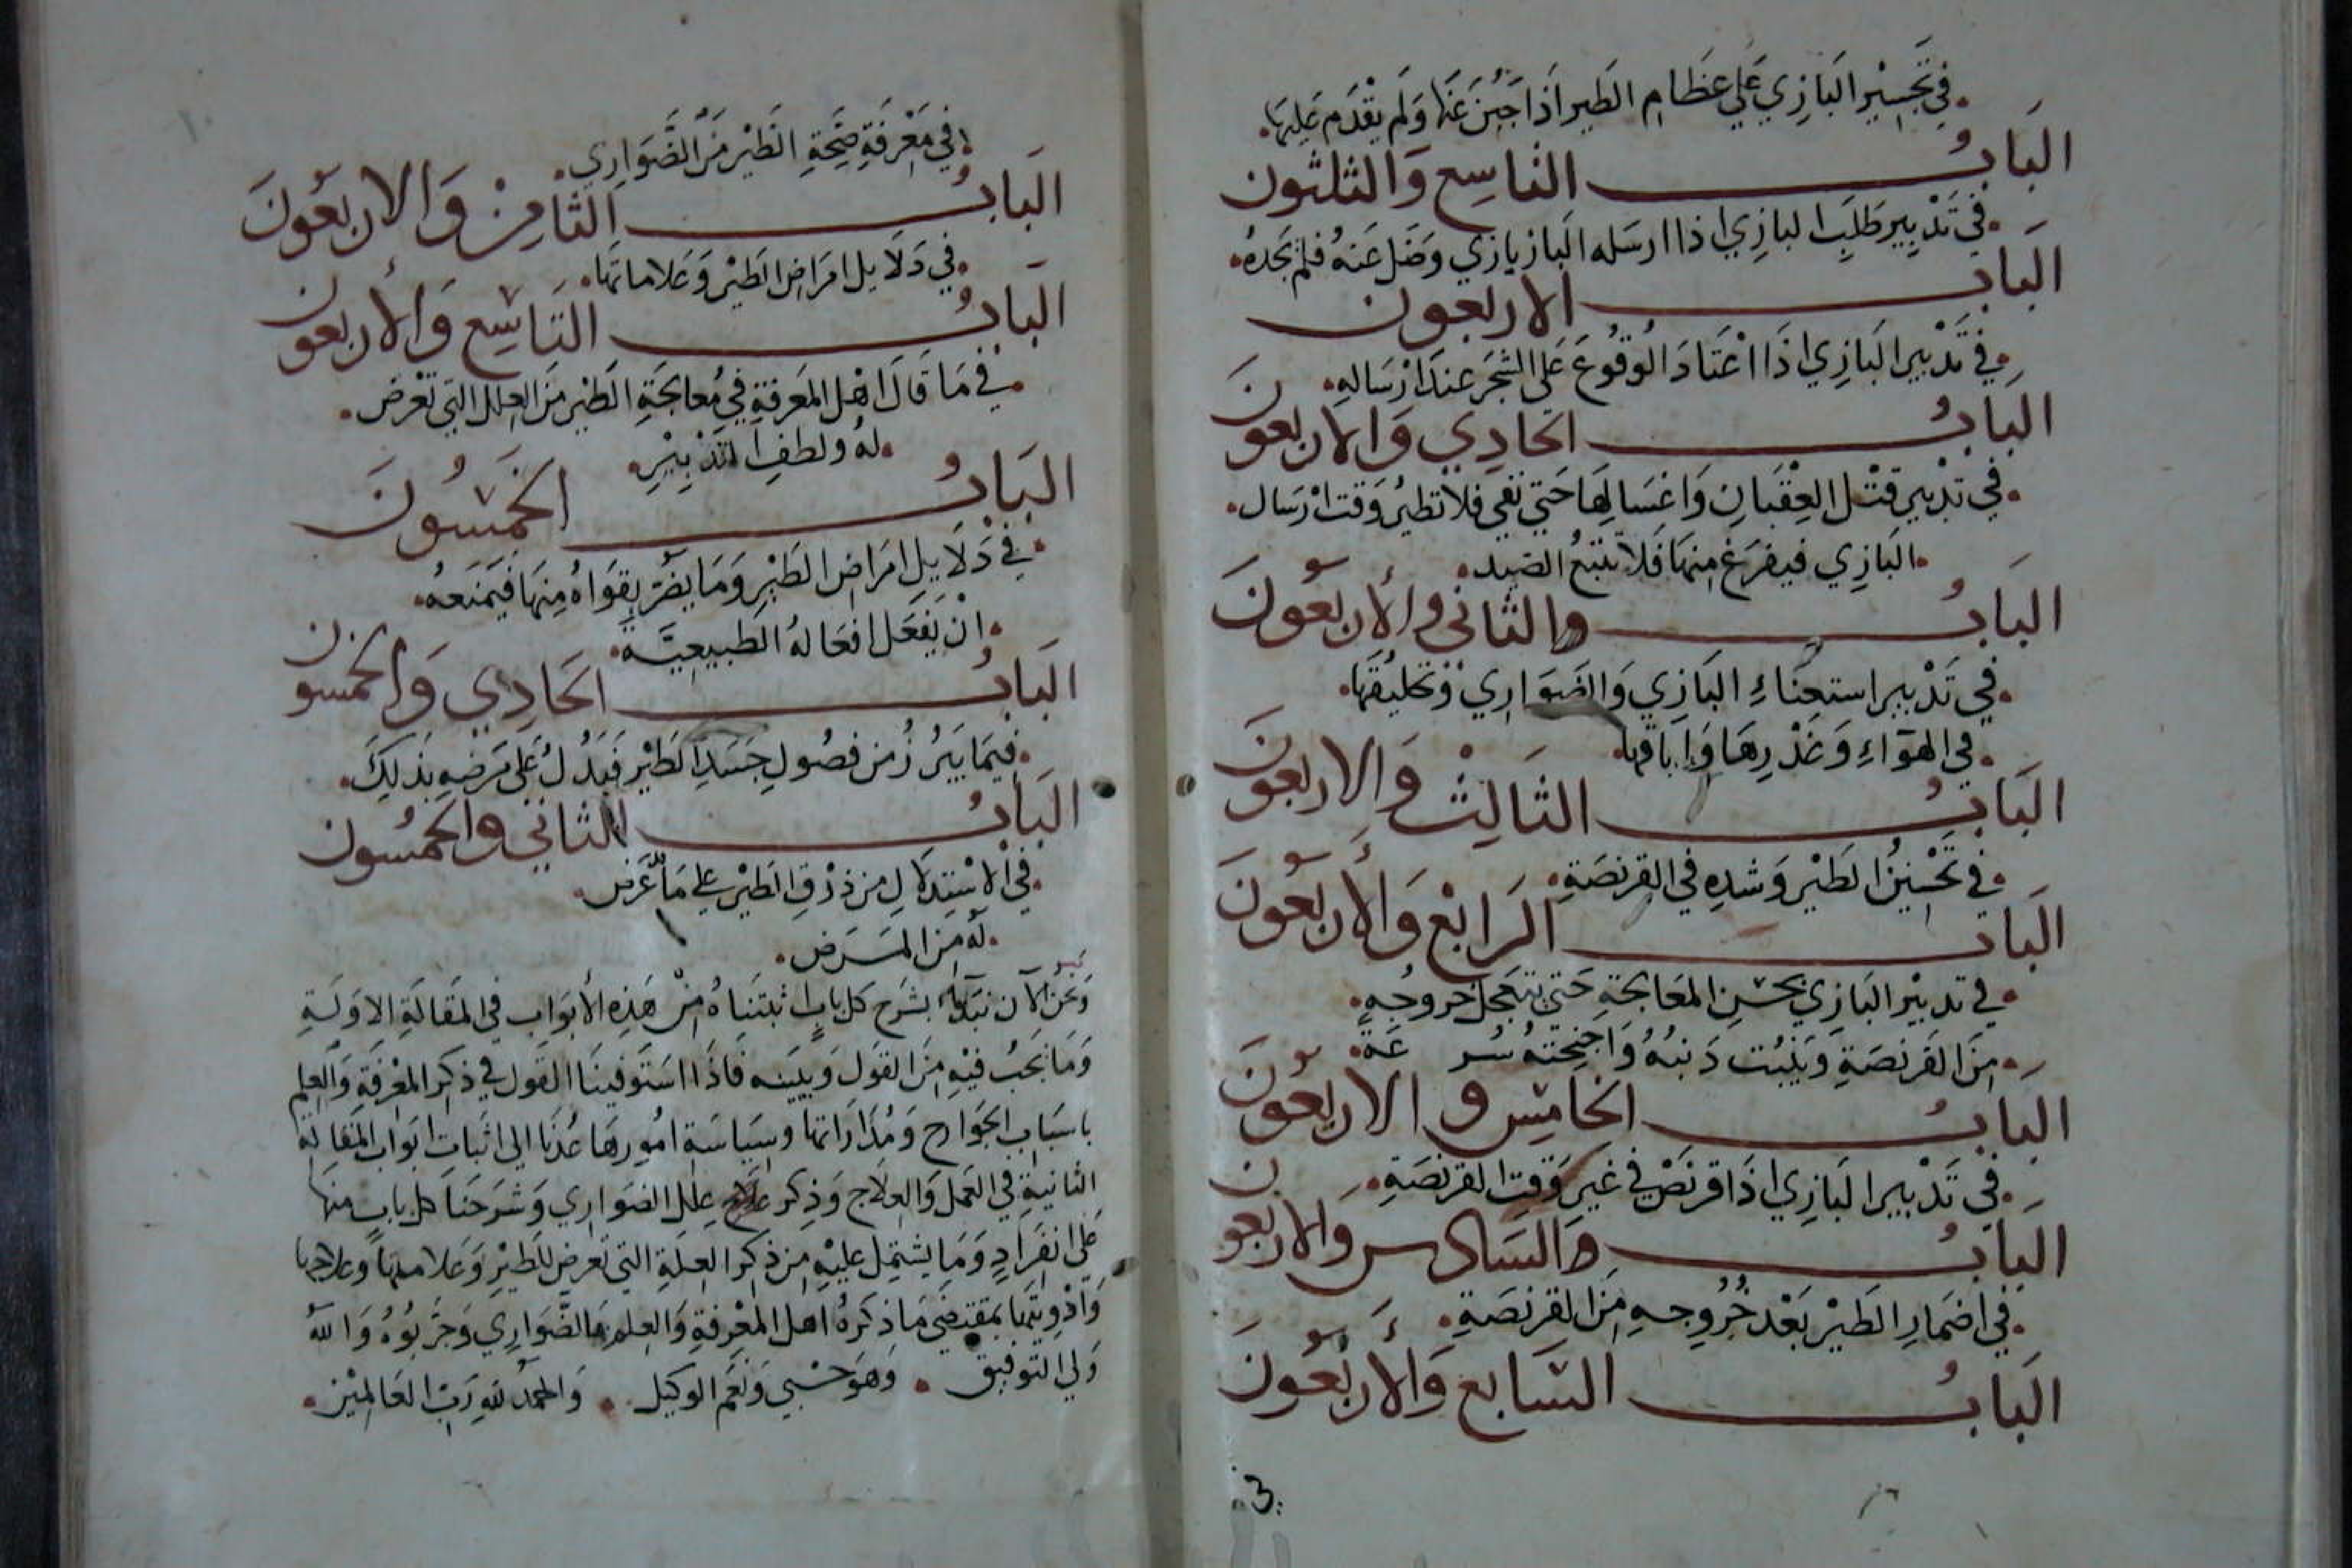 في تجسير البازي علي عظام الطير اذا جبن عنها ولم يقدم عليها
الباب التاسع والثلثون
في تدبير طلب البازي اذا ارسله البازيازي وضل عنه فلم يجده
الباب الاربعون
في تدبير البازي اذا اعتاد الوقوع على الشجر عند ارساله
الباب الحادي والاربعون
في تدبير قتل العقبان واغسالها حتي نفي فلا تطير وقت ارسال
البازي فيفرغ منها فلا تتبع الصيد
الباب والثاني والأربعون
في تدبير استعناء البازي والضواري وتحليقها
في الهوآء وغدرها واباقها
الباب الثالث والاربعون
في تحسين الطير وشده في القرنصة
الباب الرابع والأربعون
في تدبير البازي بحسن المعالجة حتي يتعجل خروجه
من القرنصة وينبت ذنبه واجنحته سرعة
الباب الخامس والاربعون
في تدبير البازي اذا قرنص في غير وقت القرنصة
الباب والسادس والاربعون
في اضمار الطير بعد خروجه من القرنصة
الباب السابع والأربعون
في معرفة صحة الطير من الضواري
الباب الثامن والاربعون
في دلايل امراض الطير وعلاماتها
الباب التاسع والأربعون
في ما قال اهل المعرفة في معالجة الطير من العلل التي تعرض
له ولطف التدبير
الباب الخمسون
في دلايل امراض الطير وما يضر بقواه منها فيمنعه
ان يفعل افعاله الطبيعية
الباب الحادي والخمسون
فيما يبرز من فصول جسد الطير فيدل على مرضه بذلك
الباب الثاني والخمسون
في الاستدلال من ذرق الطير علي ما عرض
له من المرض
ونحن الآن نبدا بشرح كل باب اثبتناه من هذه الأبواب في المقالة الاولة
وما يجب فيه من القول ويبينه فاذا استوفينا القول في ذكر المعرفة والعلم
باسباب الجوارح ومداراتها وسياسة امورها عدنا الى اثبات ابواب المقالة
الثانية في العمل والعلاج وذكر علاج علل الضواري وشرحنا كل باب منها
على انفراد وما يشتمل عليه من ذكر العلة التي تعرض للطير وعلامتها وعلاجها
وادويتها بمقتضى ما ذكره اهل المعرفة والعلم بالضواري وجربوه والله
ولي التوفيق وهو حسبي ونعم الوكيل والحمد لله رب العالمين